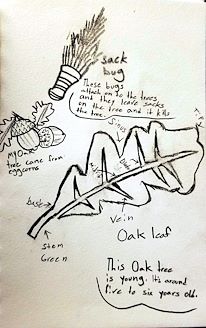 sack
bug
These bugs
attach on to the trees
and they leave sacks
on the tree and it kills
the tree.
My Oak
tree come from
eggcorns
Sinus
Vein
Oak leaf
stem
Green
This Oak tree
is young. It's around
five to six years old.